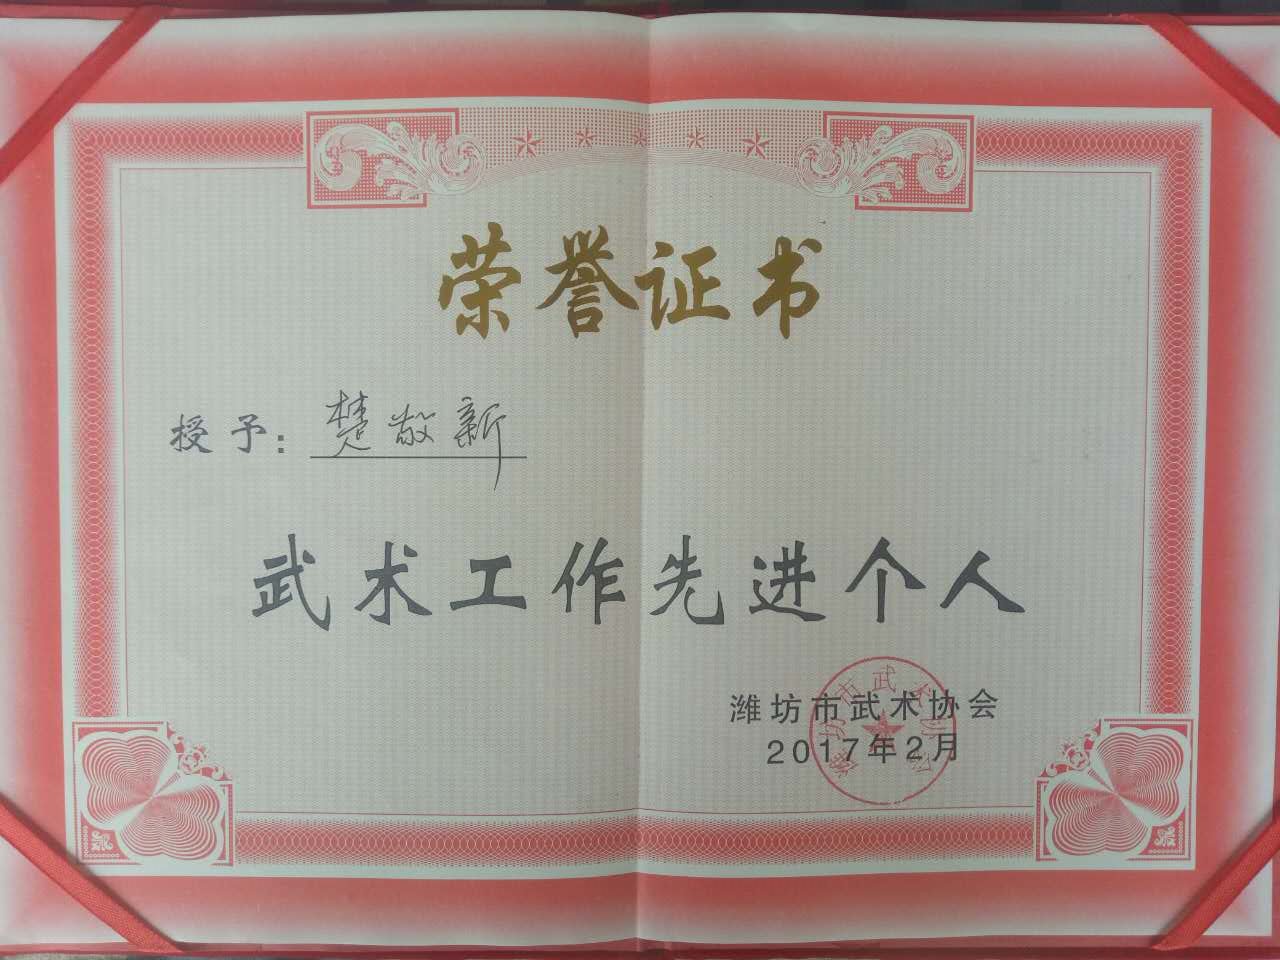 荣誉证书
授予：楚敬新
武术工作先进个人
潍坊市武术协会
2017年2月
潍坊市武术协会